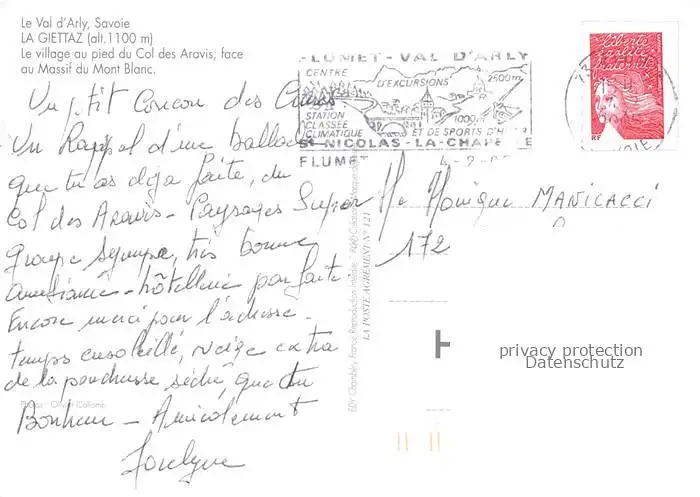 Le Val d'Arly, Savoie
LA GIETTAZ (alt.1100 m)
Le village au pied du Col des Aravis, face
au Massif du Mont Blanc.
FLUMET - VAL D'ARLY
CENTRE D'EXCURSIONS
2500m
1000m
STATION CLASSÉE CLIMATIQUE
ET DE SPORTS D'HIVER
ST NICOLAS-LA-CHAPELLE
FLUMET
Liberté égalité fraternité
RF
Un p'tit coucou des Cimes
Un Rappel d'une ballade
que tu as déja faite, du
Col des Aravis - Paysages Super
groupe sympa, très bonne
ambiance - hôtellerie parfaite
Encore merci pour l'adresse.
temps ensoleillé, neige extra
de la poudreuse sèche, que du
Bonheur - Amicalement
Jocelyne
Mlle Monique MANICACCI
172
EDY Chambéry, France. Reproduction interdite
LA POSTE AGREMENT N° 121
H
privacy protection
Datenschutz
Photos : Olivier Collomb